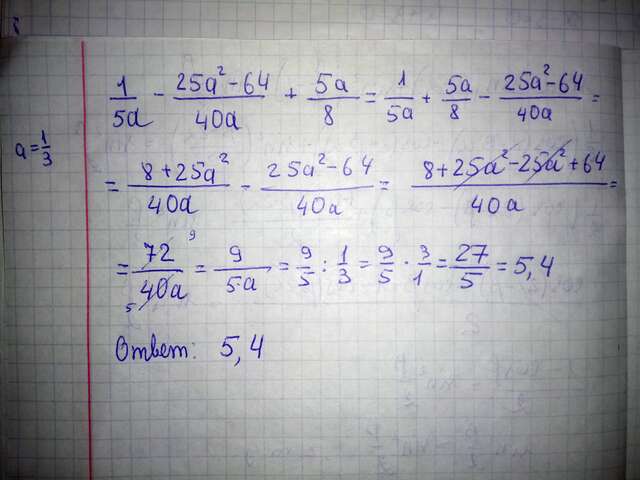 a = 1/3
1/5a - 25a²-64/40a + 5a/8 = 1/5a + 5a/8 - 25a²-64/40a =
= 8+25a²/40a - 25a²-64/40a = 8+25a²-25a²+64/40a =
= 72/40a = 9/5a = 9/5 : 1/3 = 9/5 · 3/1 = 27/5 = 5,4
Ответ: 5,4